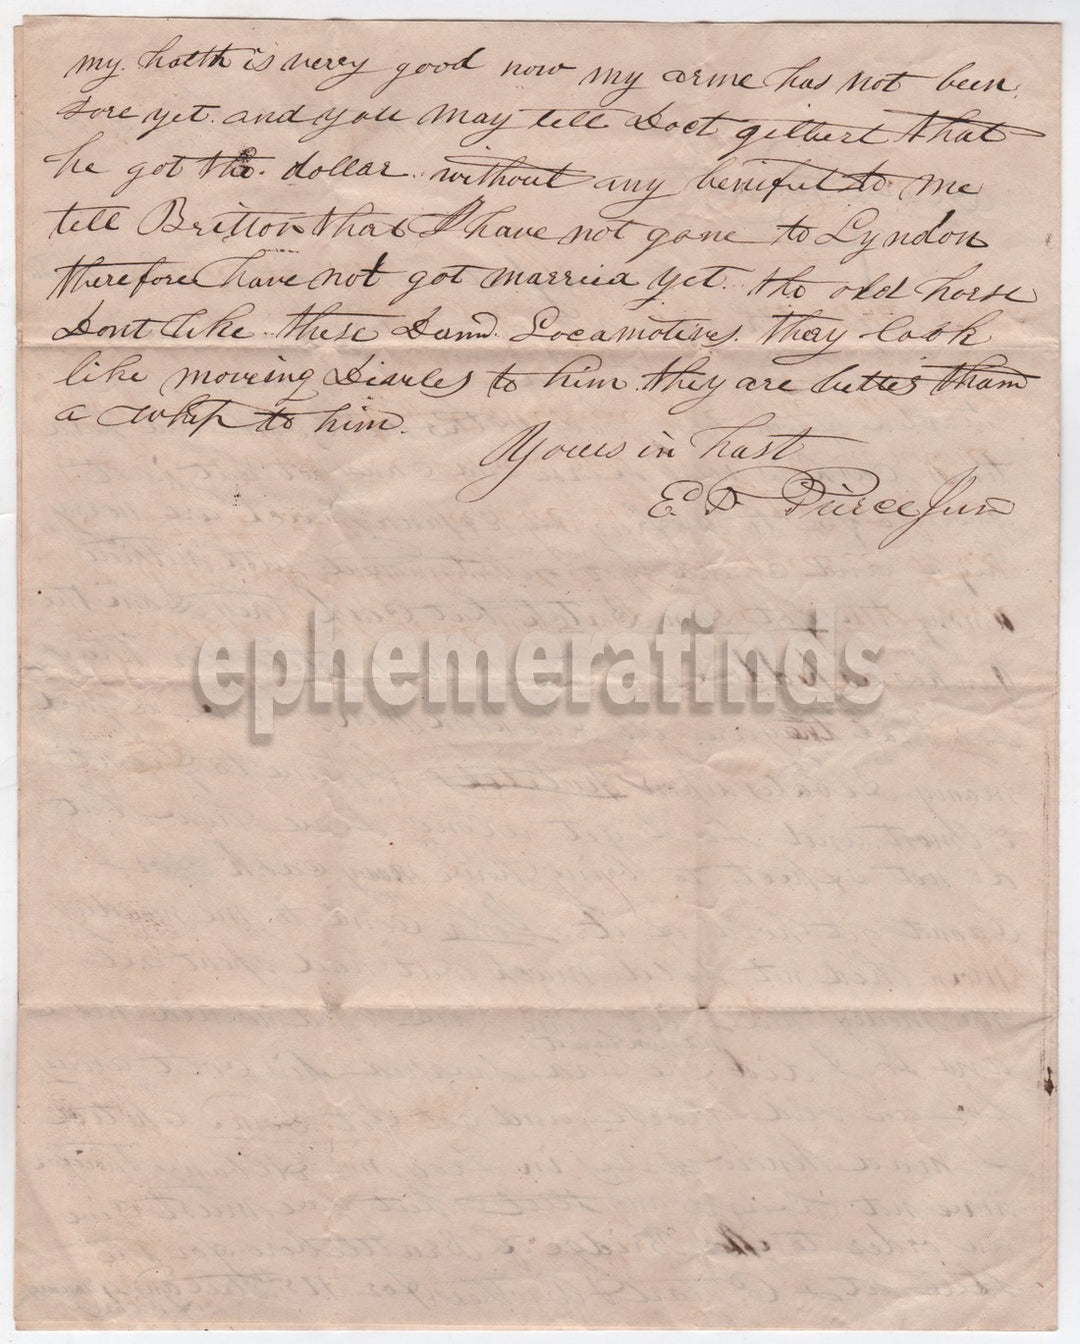 my. halth is verry good now my arme has not been
sore yet. and you may tell Doct gilbert that
he got the. dollar. without any benifit to me
tell Britton that I have not gone to Lyndon
therefore have not got married yet. the old horse
Dont like. these Damd. Locamotives. they look
like moveing Divles to him. they are better tham
a whip to him.
Yours in hast
E. D Pierce Jun
ephemerafinds